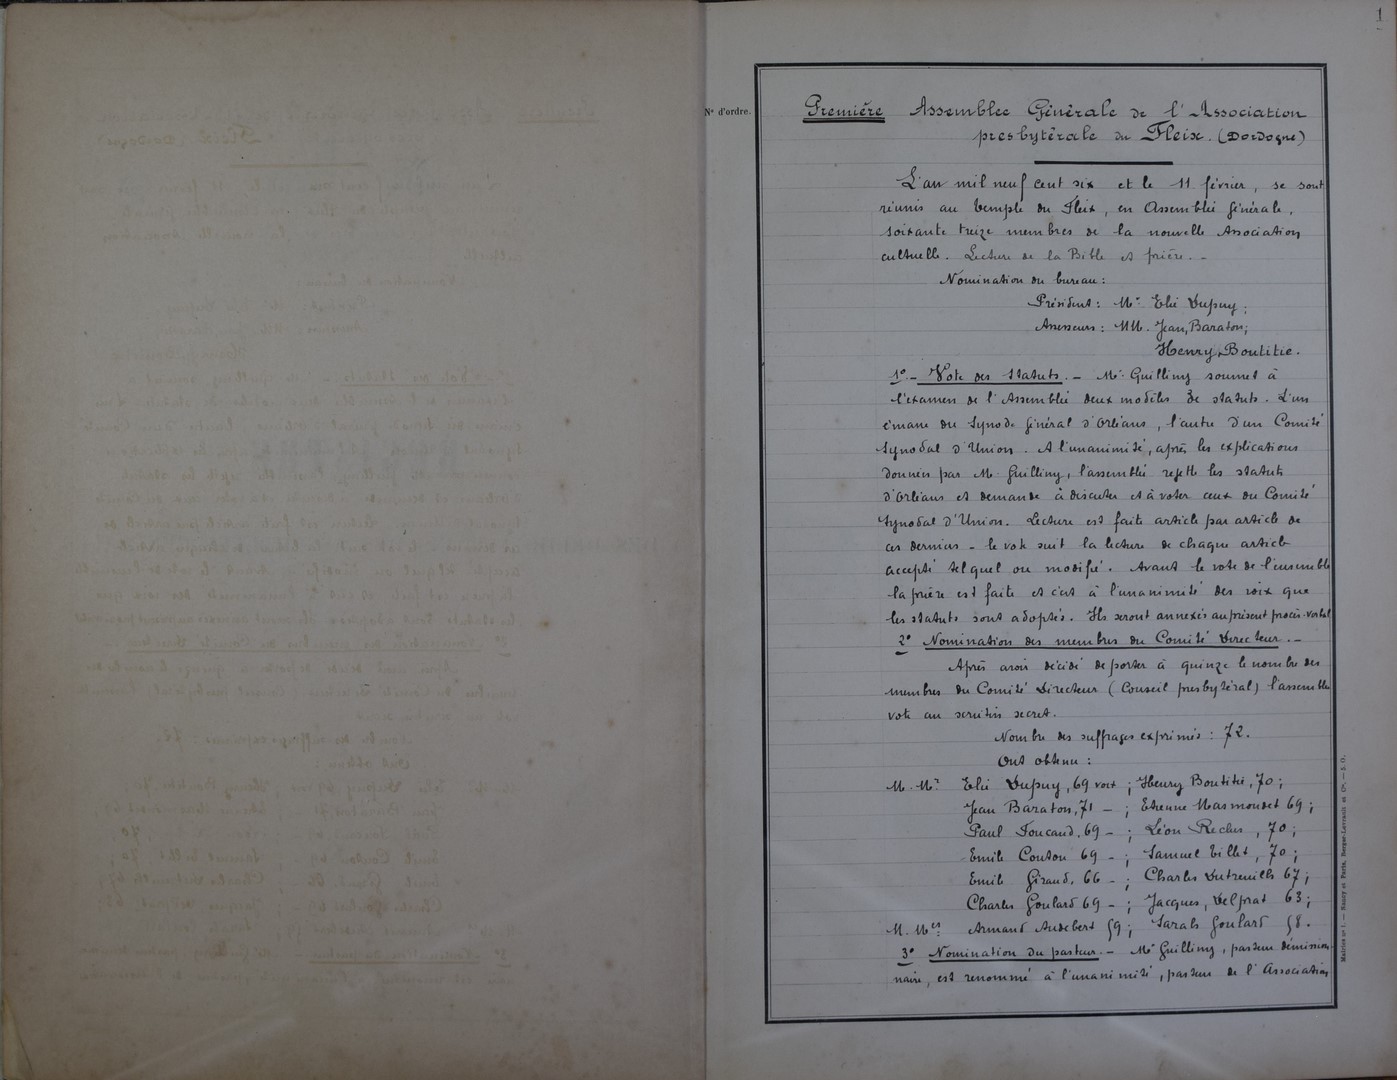 1
N° d'ordre.
Première Assemblée Générale de l'Association
presbytérale du Fleix. (Dordogne)
L'an mil neuf cent six et le 11 février, se sont
réunis au temple du Fleix, en Assemblée générale,
soixante treize membres de la nouvelle Association
cultuelle. Lecture de la Bible et prière. -
Nomination du bureau :
Président : Mr Elie Dupuy ;
Assesseurs : MM. Jean Baraton ;
Henry Boutitie.
1° - Vote des statuts. - Mr Guilliny soumet à
l'examen de l'Assemblée deux modèles de statuts. L'un
émane du Synode général d'Orléans, l'autre d'un Comité
Synodal d'Union. A l'unanimité, après les explications
données par M. Guilliny, l'assemblée rejette les statuts
d'Orléans et demande à discuter et à voter ceux du Comité
Synodal d'Union. Lecture est faite article par article de
ces derniers - le vote suit la lecture de chaque article
accepté tel quel ou modifié. Avant le vote de l'ensemble
la prière est faite et c'est à l'unanimité des voix que
les statuts sont adoptés. Ils seront annexés au présent procès-verbal
2° Nomination des membres du Comité Directeur. -
Après avoir décidé de porter à quinze le nombre des
membres du Comité Directeur (Conseil presbytéral) l'assemblée
vote au scrutin secret.
Nombre des suffrages exprimés : 72.
Ont obtenu :
M. Mrs Elie Dupuy, 69 voix ; Henry Boutitié, 70 ;
Jean Baraton, 71 - ; Etienne Masmondet 69 ;
Paul Foucaud, 69 - ; Léon Reclus, 70 ;
Emile Couton 69 - ; Samuel Billet, 70 ;
Emile Giraud, 66 - ; Charles Dutreuilh 67 ;
Charles Goulard 69 - ; Jacques Delprat 63 ;
M. Mes Armand Audebert 59 ; Sarah Goulard 58.
3° Nomination du pasteur. - Mr Guilliny, pasteur démission-
naire, est renommé à l'unanimité, pasteur de l'Association
Matrice n° 1. — Nancy et Paris, Berger-Levrault et Cie. — S. O.